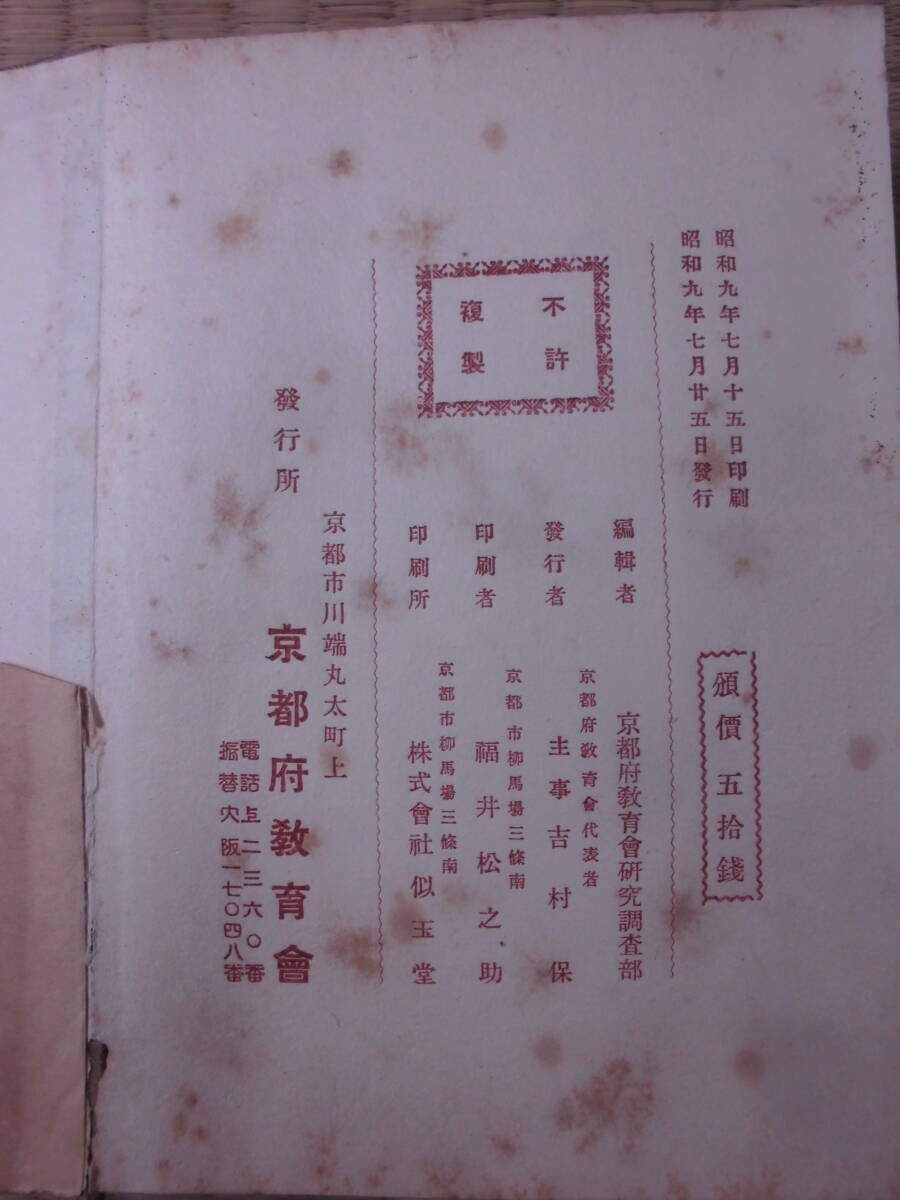 昭和九年七月十五日印刷
昭和九年七月廿五日發行
頒價五拾錢
不許
複製
編輯者
京都府教育會研究調査部
發行者
京都府教育會代表者
主事吉村保
印刷者
京都市柳馬場三條南
福井松之助
印刷所
京都市柳馬場三條南
株式會社似玉堂
京都市川端丸太町上
發行所
京都府教育會
電話上二三六〇番
振替大阪一七〇四八番